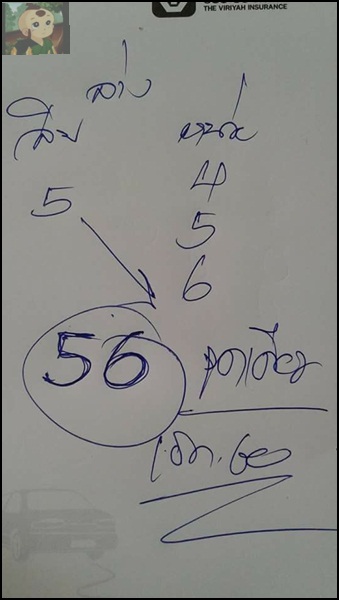 THE VIRIYAH INSURANCE
ล่าง
สิบ หน่วย
5 4
5
6
56 ชุดเดียว